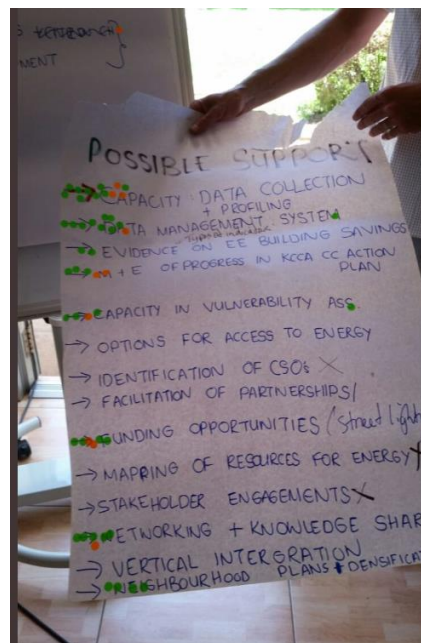 MENT
POSSIBLE SUPPORT
→ CAPACITY: DATA COLLECTION
+ PROFILING
DATA MANAGEMENT SYSTEM
→ EVIDENCE ON EE BUILDING SAVINGS
→ M + E OF PROGRESS IN KCCA CC ACTION
PLAN
→ CAPACITY IN VULNERABILITY ASS.
→ OPTIONS FOR ACCESS TO ENERGY
→ IDENTIFICATION OF CSOs X
→ FACILITATION OF PARTNERSHIPS/
→ FUNDING OPPORTUNITIES / Street light
→ MAPPING OF RESOURCES FOR ENERGY X
→ STAKEHOLDER ENGAGEMENTS X
→ NETWORKING + KNOWLEDGE SHAR
→ VERTICAL INTERGRATION
→ NEIGHBOURHOOD PLANS + DENSIFICAT